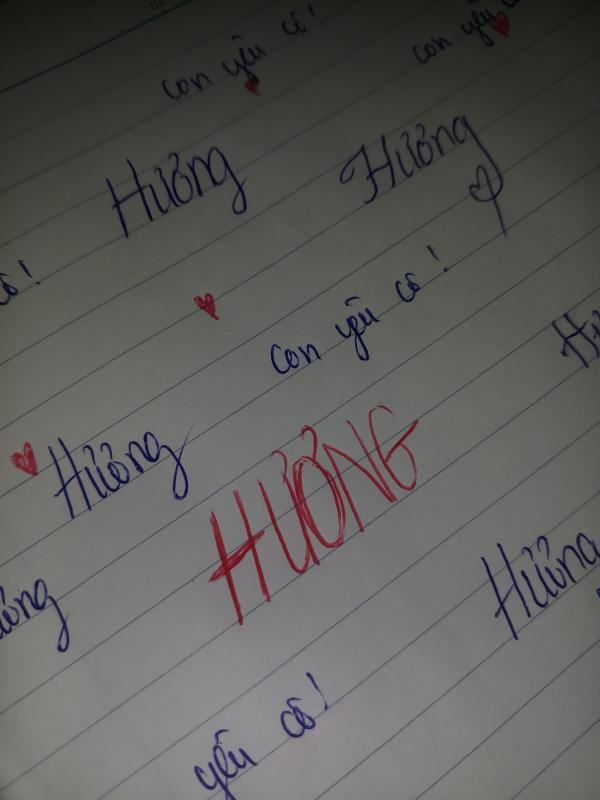 con yêu cô!
con yêu
Hưởng
Hưởng
cô!
con yêu cô!
Hư
Hưởng
HƯỞNG
Hưởng
ưởng
yêu cô!